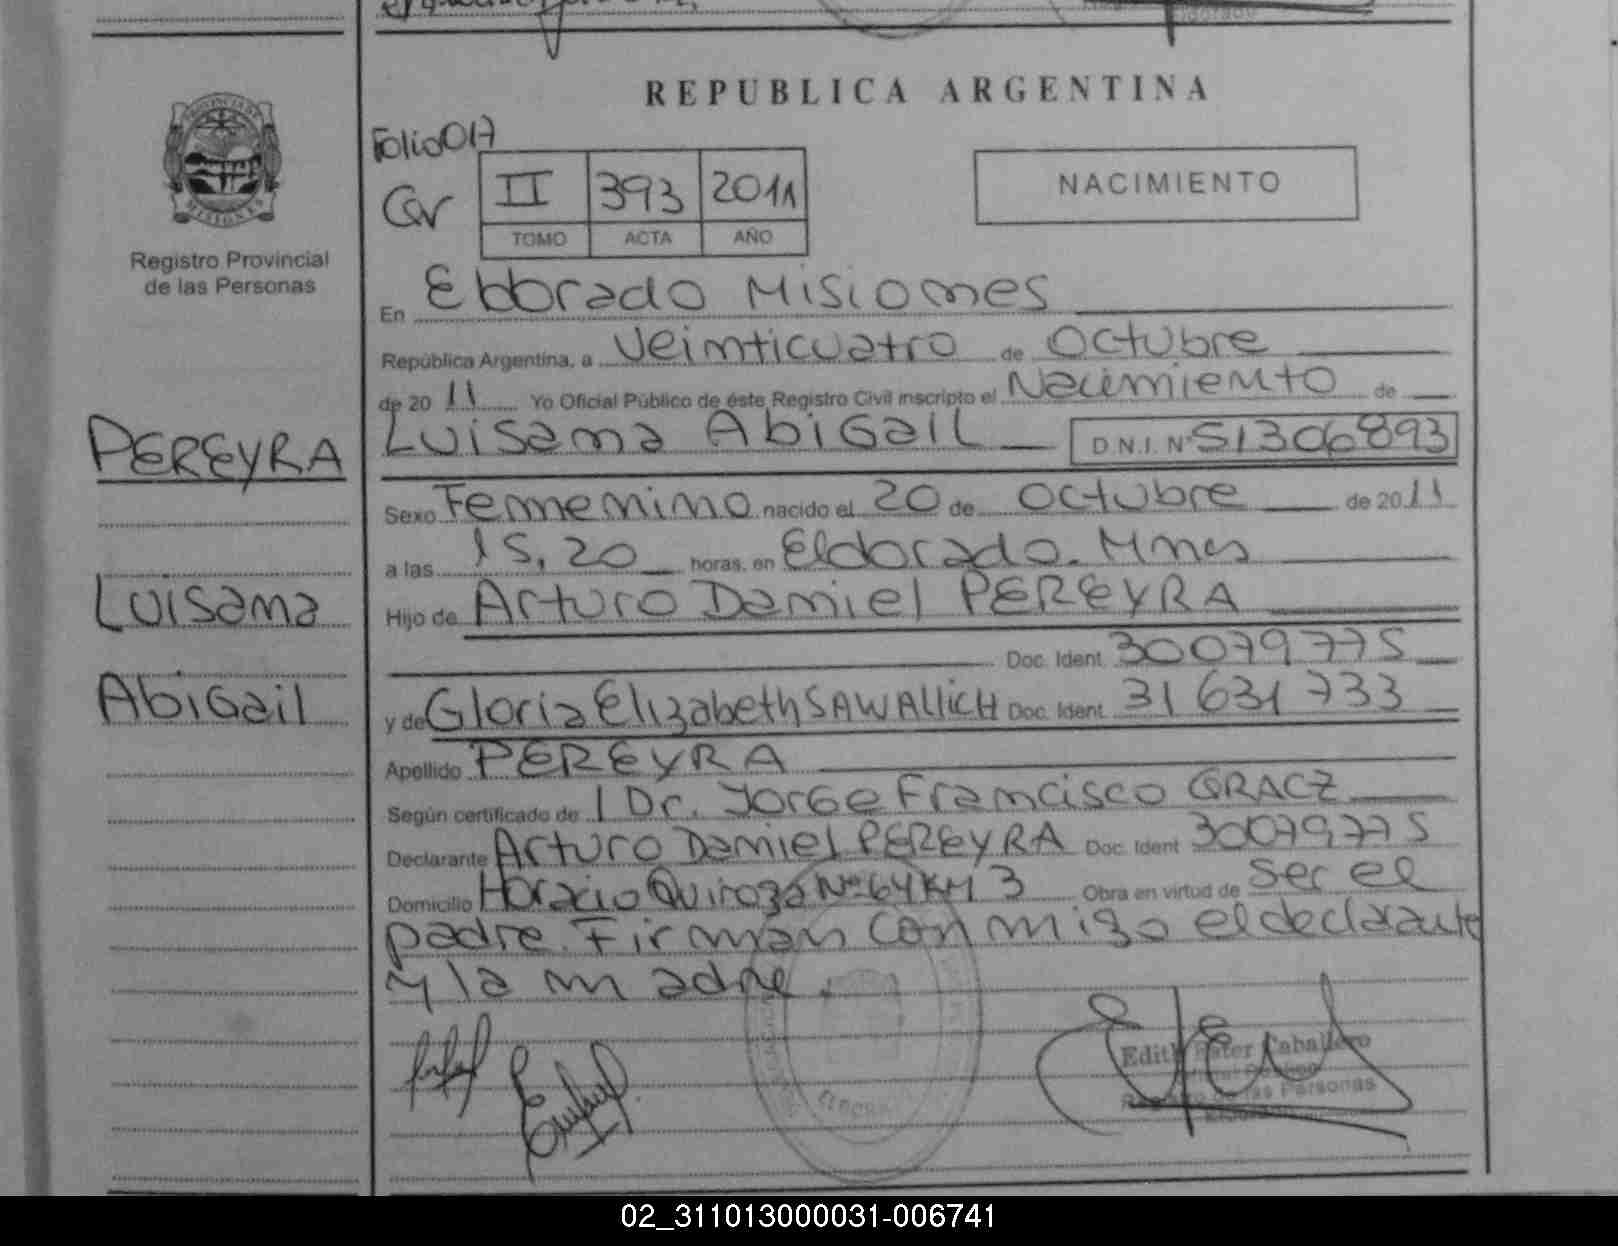 REPUBLICA ARGENTINA
PROVINCIA DE
MISIONES
Registro Provincial
de las Personas
Folio 017
Gr
II 393 2011
TOMO ACTA AÑO
NACIMIENTO
En Eldorado Misiones
República Argentina, a Veinticuatro de Octubre
de 2011 Yo Oficial Público de éste Registro Civil inscripto el Nacimiento de
Luisana Abigail D.N.I. Nº 51306893
PEREYRA
Sexo Femenino nacido el 20 de Octubre de 2011
a las 15,20 horas, en Eldorado. Mnes
Luisana
Hijo de Arturo Daniel PEREYRA
Doc. Ident. 30079775
Abigail
y de Gloria Elizabeth SAWALLICH Doc. Ident. 31631733
Apellido PEREYRA
Según certificado de l Dr. Jorge Francisco GRACZ
Declarante Arturo Daniel PEREYRA Doc. Ident 30079775
Domicilio Horacio Quiroga Nº 64 KM 3 Obra en virtud de Ser el
padre. Firman conmigo el declarante
y la madre.
Edith Ester Caballero
las Personas
02_311013000031-006741